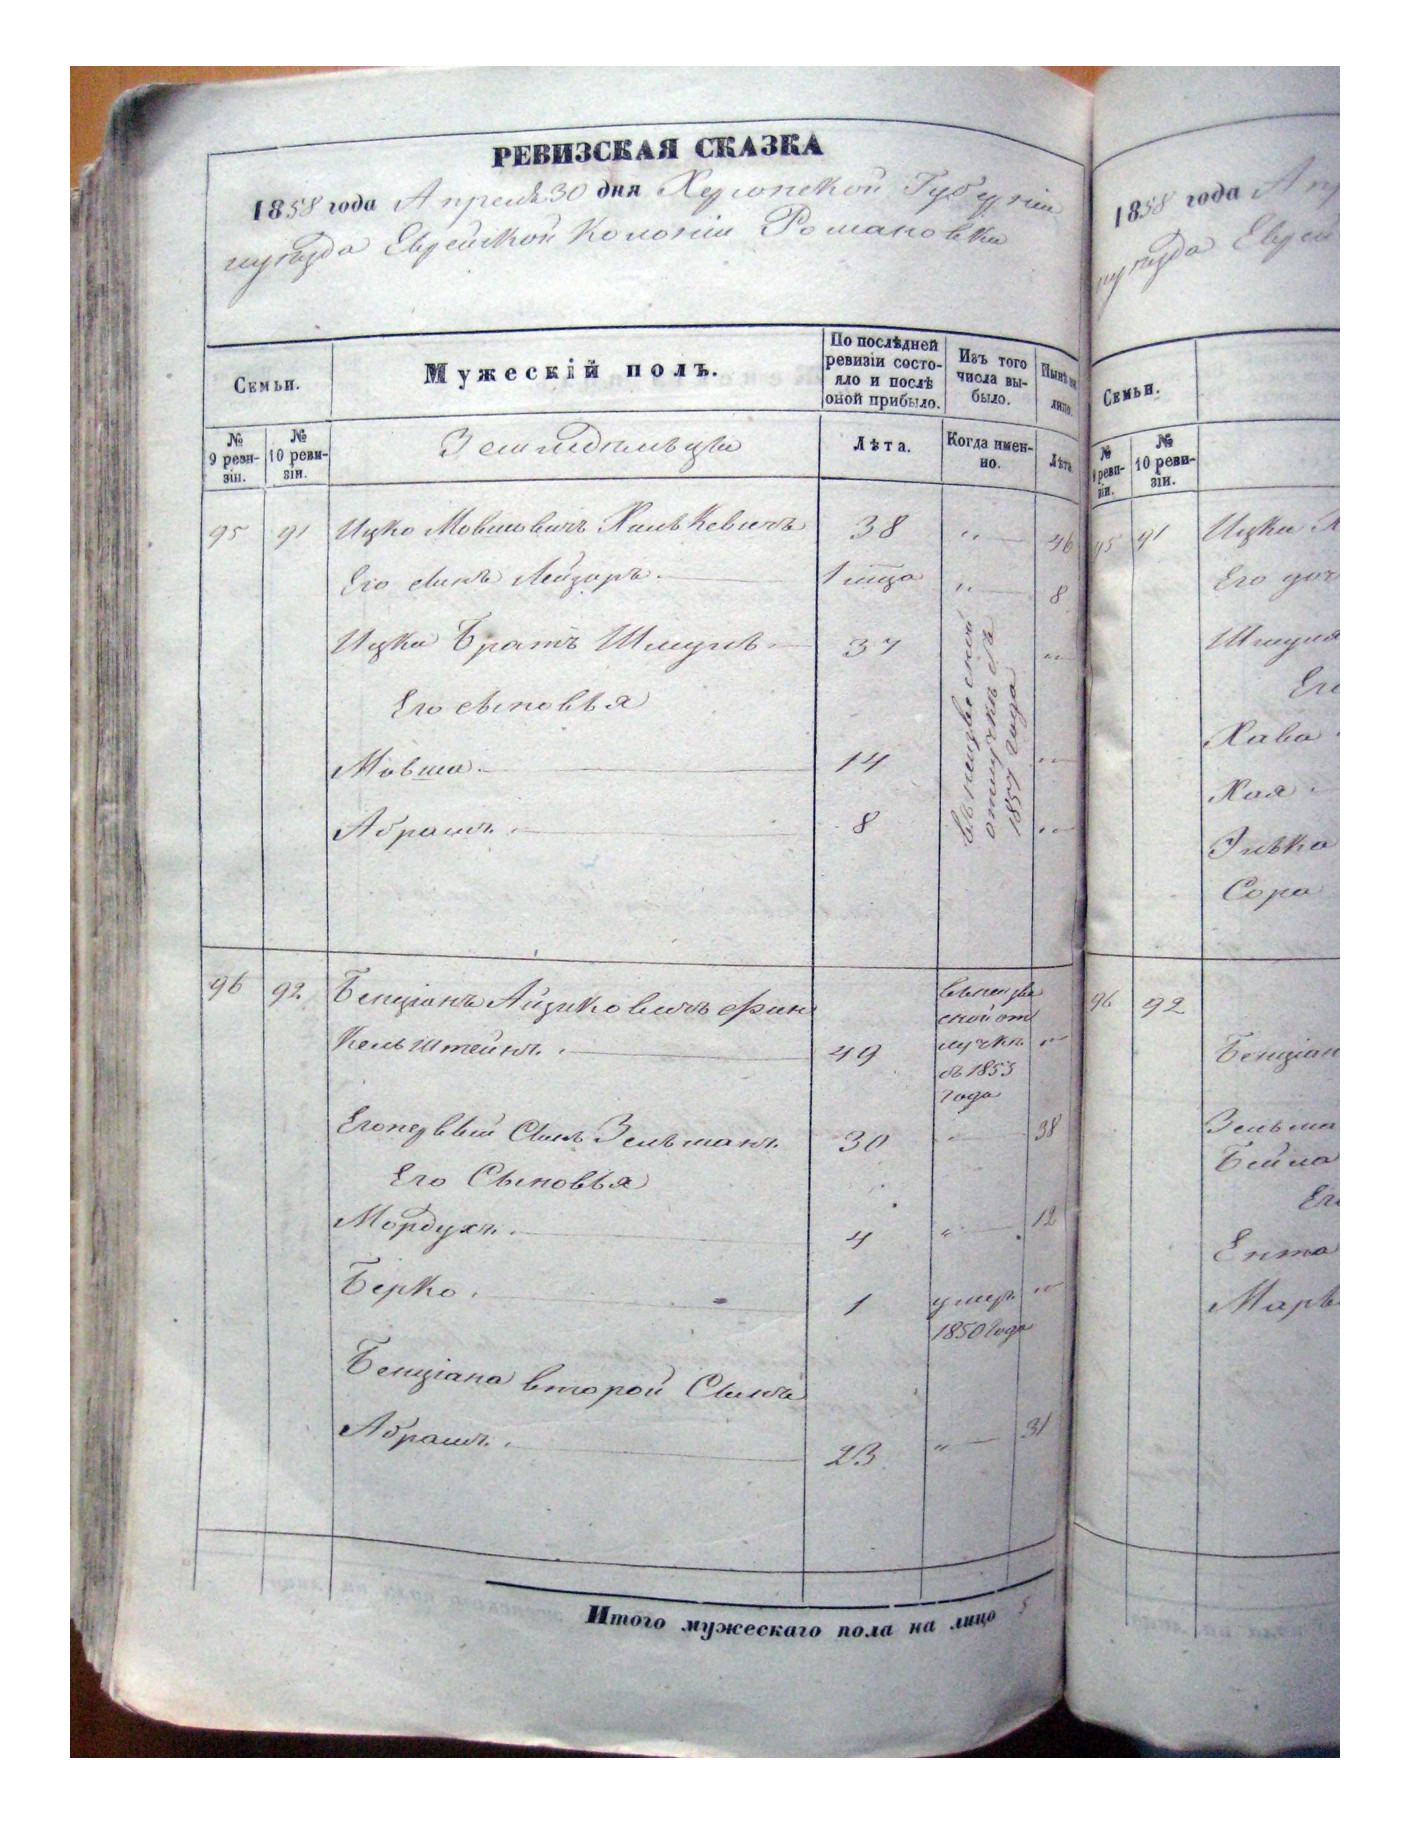 РЕВИЗСКАЯ СКАЗКА
1858 года Апреля 30 дня Херсонской Губерніи
и уѣзда Еврейской Колоніи Романовки
Семьи.
Мужескій полъ.
По послѣдней ревизіи состо-
яло и послѣ
оной прибыло.
Изъ того
числа вы-
было.
Нынѣ на
лицо.
№
9 реви-
зіи.
№
10 реви-
зіи.
Земледѣльцы
Лѣта.
Когда имен-
но.
Лѣта
95 91 Ицко Мовшовичъ Хилькевичъ 38 „ 46
Его сынъ Лейзоръ. 1 м-ца „ 8
Ицки Братъ Шмуль 37 „
Его сыновья
Мовша. 14 „
Абрамъ. 8 „
въ неизвестной
отлучкѣ съ
1857 года
96 92. Бенціанъ Айзиковичъ Фин
кельштейнъ. 49 „
въ неизве
стной от
лучкѣ
съ 1853
года
Его первый Сынъ Зельманъ. 30 „ 38
Его Сыновья
Мордухъ. 4 „ 12
Берко. 1 умер. „
1850 года
Бенціана второй Сынъ
Абрамъ. 23 „ 31
Итого мужескаго пола на лицо 5
1858 года Апр
и уѣзда Еврей
Семьи.
№
9 реви-
зіи.
№
10 реви-
зіи.
95 91 Ицки
Его доч
Шмуля
Его
Хава
Хая
Сора
96 92
Бенціан
Зельма
Бейла
Ента